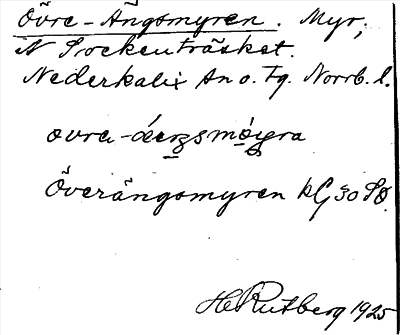 Övre-Ängsmyren. Myr;
N Sockenträsket.
Nederkalix sn o. Tg. Norrb. l.
övre-
Överängsmyren kG 30 SO.
H Rutberg 1925